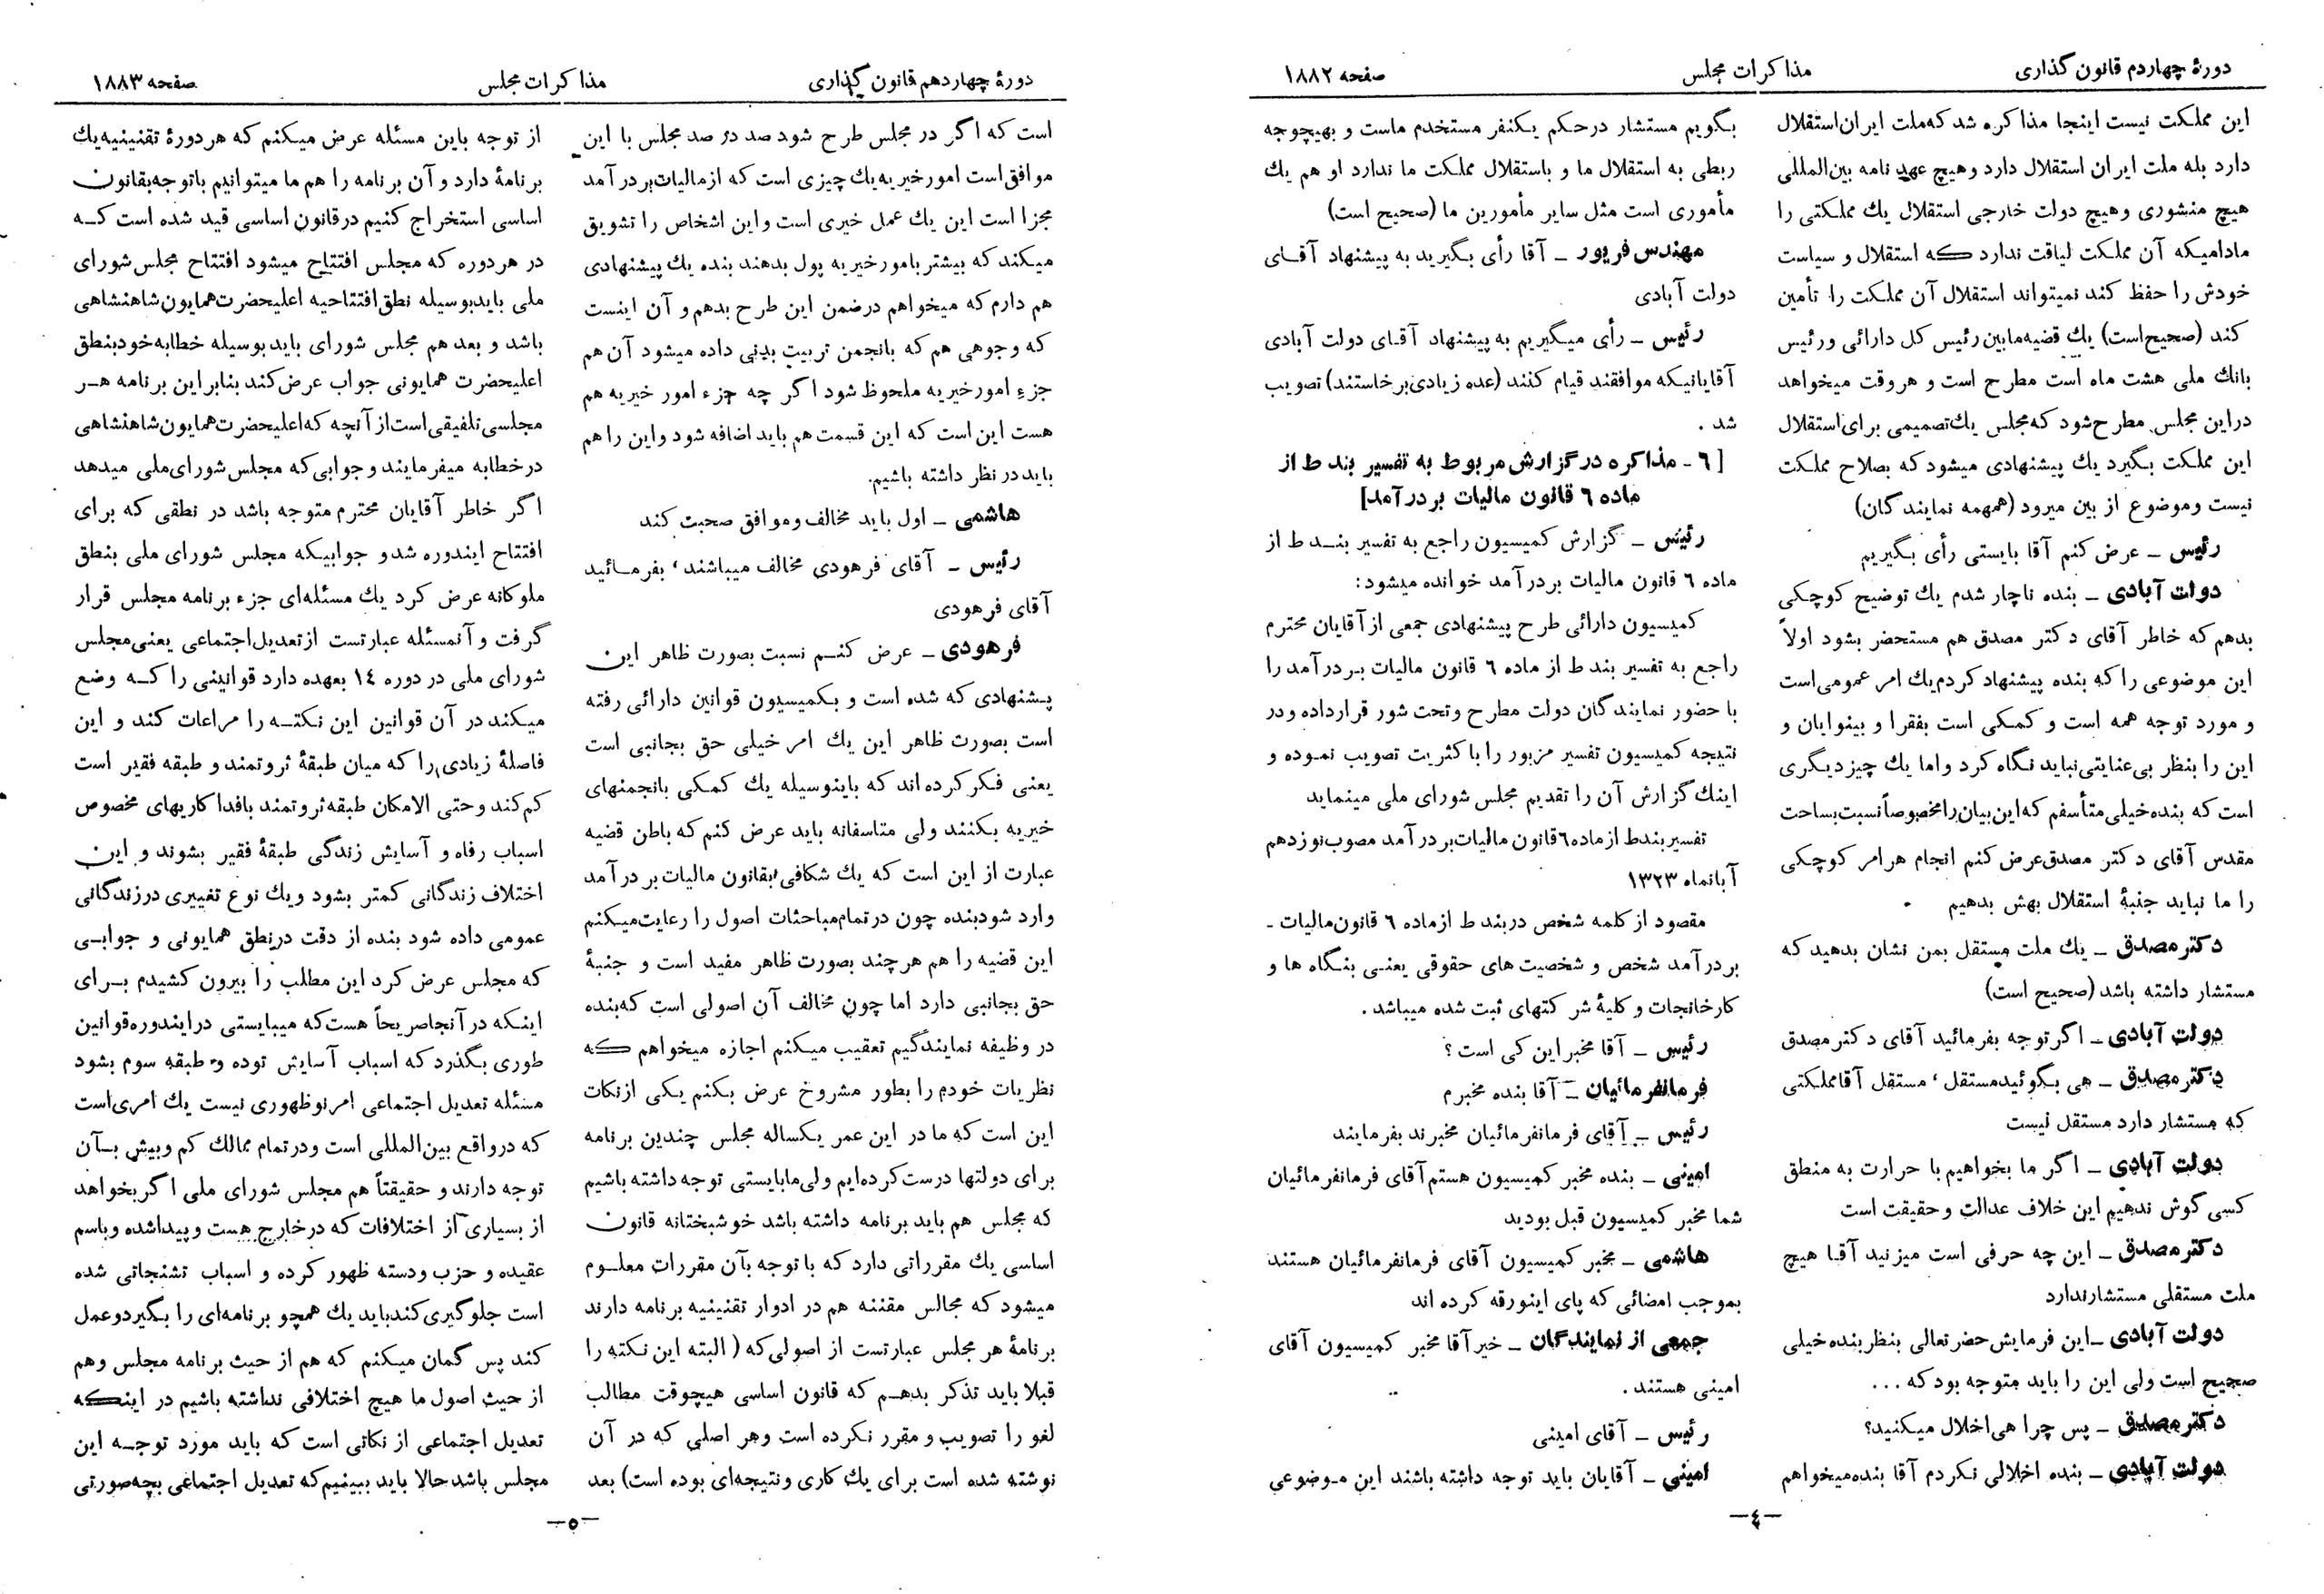 دورهٔ چهاردم قانون گذاری
مذاکرات مجلس
صفحه ۱۸۸۲
این مملکت نیست اینجا مذاکره شد که ملت ایران استقلال
دارد بله ملت ایران استقلال دارد وهیچ عهد نامه بین‌المللی
هیچ منشوری وهیچ دولت خارجی استقلال یك مملکتی را
مادامیکه آن مملکت لیاقت ندارد که استقلال و سیاست
خودش را حفظ کند نمیتواند استقلال آن مملکت را تأمین
کند (صحیح‌است) یك قضیه مابین رئیس کل دارائی ورئیس
بانك ملی هشت ماه است مطرح است و هروقت میخواهد
دراین مجلس مطرح شود که مجلس یك تصمیمی برای استقلال
این مملکت بگیرد یك پیشنهادی میشود که بصلاح مملکت
نیست وموضوع از بین میرود (همهمه نمایندگان)
رئیس ـ عرض کنم آقا بایستی رأی بگیریم
دولت آبادی ـ بنده ناچار شدم یك توضیح کوچکی
بدهم که خاطر آقای دکتر مصدق هم مستحضر بشود اولاً
این موضوعی را که بنده پیشنهاد کردم یك امر عمومی است
و مورد توجه همه است و کمکی است بفقرا و بینوایان و
این را بنظر بی‌عنایتی نباید نگاه کرد واما یك چیز دیگری
است که بنده خیلی متأسفم که این بیان را مخصوصاً نسبت بساحت
مقدس آقای دکتر مصدق عرض کنم انجام هر امر کوچکی
را ما نباید جنبهٔ استقلال بهش بدهیم .
دکتر مصدق ـ یك ملت مستقل بمن نشان بدهید که
مستشار داشته باشد (صحیح است)
دولت آبادی ـ اگر توجه بفرمائید آقای دکتر مصدق
دکتر مصدق ـ هی بگوئید مستقل ، مستقل آقا مملکتی
که مستشار دارد مستقل نیست
دولت آبادی ـ اگر ما بخواهیم با حرارت به منطق
کسی گوش ندهیم این خلاف عدالت و حقیقت است
دکتر مصدق ـ این چه حرفی است میزنید آقا هیچ
ملت مستقلی مستشار ندارد
دولت آبادی ـ این فرمایش حضرتعالی بنظر بنده خیلی
صحیح است ولی این را باید متوجه بود که ...
دکتر مصدق ـ پس چرا هی اخلال میکنید؟
دولت آبادی ـ بنده اخلالی نکردم آقا بنده میخواهم
بگویم مستشار درحکم یکنفر مستخدم ماست و بهیچوجه
ربطی به استقلال ما و باستقلال مملکت ما ندارد او هم یك
مأموری است مثل سایر مأمورین ما (صحیح است)
مهندس فریور ـ آقا رأی بگیرید به پیشنهاد آقای
دولت آبادی
رئیس ـ رأی میگیریم به پیشنهاد آقای دولت آبادی
آقایانیکه موافقند قیام کنند (عده زیادی برخاستند) تصویب
شد .
[ ٦ - مذاکره در گزارش مربوط به تفسیر بند ط از
ماده ٦ قانون مالیات بر درآمد]
رئیس ـ گزارش کمیسیون راجع به تفسیر بند ط از
ماده ٦ قانون مالیات بردرآمد خوانده میشود :
کمیسیون دارائی طرح پیشنهادی جمعی از آقایان محترم
راجع به تفسیر بند ط از ماده ٦ قانون مالیات بر درآمد را
با حضور نمایندگان دولت مطرح وتحت شور قرارداده ودر
نتیجه کمیسیون تفسیر مزبور را باکثریت تصویب نموده و
اینك گزارش آن را تقدیم مجلس شورای ملی مینماید
تفسیر بند ط از ماده ٦ قانون مالیات بردرآمد مصوب نوزدهم
آبانماه ۱۳۲۳
مقصود از کلمه شخص در بند ط از ماده ٦ قانون مالیات -
بر درآمد شخص و شخصیت های حقوقی یعنی بنگاه ها و
کارخانجات و کلیهٔ شرکتهای ثبت شده میباشد .
رئیس ـ آقا مخبر این کی است ؟
فرمانفرمائیان ـ آقا بنده مخبرم
رئیس ـ آقای فرمانفرمائیان مخبرند بفرمایند
امینی ـ بنده مخبر کمیسیون هستم آقای فرمانفرمائیان
شما مخبر کمیسیون قبل بودید
هاشمی ـ مخبر کمیسیون آقای فرمانفرمائیان هستند
بموجب امضائی که پای اینورقه کرده اند
جمعی از نمایندگان ـ خیر آقا مخبر کمیسیون آقای
امینی هستند .
رئیس ـ آقای امینی
امینی ـ آقایان باید توجه داشته باشند این موضوعی
-٤-
دورهٔ چهاردهم قانون گذاری
مذاکرات مجلس
صفحه ۱۸۸۳
است که اگر در مجلس طرح شود صد در صد مجلس با این
موافق است امور خیریه یك چیزی است که از مالیات بر درآمد
مجزا است این یك عمل خیری است واین اشخاص را تشویق
میکند که بیشتر بامور خیریه پول بدهند بنده یك پیشنهادی
هم دارم که میخواهم درضمن این طرح بدهم و آن اینست
که وجوهی هم که بانجمن تربیت بدنی داده میشود آن هم
جزء امور خیریه ملحوظ شود اگر چه جزء امور خیریه هم
هست این است که این قسمت هم باید اضافه شود واین را هم
باید در نظر داشته باشیم.
هاشمی ـ اول باید مخالف وموافق صحبت کند
رئیس ـ آقای فرهودی مخالف میباشند ، بفرمائید
آقای فرهودی
فرهودی ـ عرض کنم نسبت بصورت ظاهر این
پیشنهادی که شده است و بکمیسیون قوانین دارائی رفته
است بصورت ظاهر این یك امر خیلی حق بجانبی است
یعنی فکر کرده‌اند که باینوسیله یك کمکی بانجمنهای
خیریه بکنند ولی متاسفانه باید عرض کنم که باطن قضیه
عبارت از این است که یك شکافی بقانون مالیات بر درآمد
وارد شود بنده چون در تمام مباحثات اصول را رعایت میکنم
این قضیه را هم هر چند بصورت ظاهر مفید است و جنبهٔ
حق بجانبی دارد اما چون مخالف آن اصولی است که بنده
در وظیفه نمایندگیم تعقیب میکنم اجازه میخواهم که
نظریات خودم را بطور مشروخ عرض بکنم یکی از نکات
این است که ما در این عمر یکساله مجلس چندین برنامه
برای دولتها درست کرده‌ایم ولی مابایستی توجه داشته باشیم
که مجلس هم باید برنامه داشته باشد خوشبختانه قانون
اساسی یك مقرراتی دارد که با توجه بآن مقررات معلوم
میشود که مجالس مقننه هم در ادوار تقنینیه برنامه دارند
برنامهٔ هر مجلس عبارتست از اصولی که ( البته این نکته را
قبلا باید تذکر بدهم که قانون اساسی هیچوقت مطالب
لغو را تصویب و مقرر نکرده است وهر اصلی که در آن
نوشته شده است برای یك کاری ونتیجه‌ای بوده است) بعد
از توجه باین مسئله عرض میکنم که هر دورهٔ تقنینیه یك
برنامهٔ دارد و آن برنامه را هم ما میتوانیم باتوجه بقانون
اساسی استخراج کنیم درقانون اساسی قید شده است که
در هر دوره که مجلس افتتاح میشود افتتاح مجلس شورای
ملی باید بوسیله نطق افتتاحیه اعلیحضرت همایون شاهنشاهی
باشد و بعد هم مجلس شورای باید بوسیله خطابه خود بنطق
اعلیحضرت همایونی جواب عرض کند بنابراین برنامه هر
مجلسی تلفیقی است از آنچه که اعلیحضرت همایون شاهنشاهی
درخطابه میفرمایند وجوابی که مجلس شورای ملی میدهد
اگر خاطر آقایان محترم متوجه باشد در نطقی که برای
افتتاح ایندوره شدو جوابیکه مجلس شورای ملی بنطق
ملوکانه عرض کرد یك مسئله‌ای جزء برنامه مجلس قرار
گرفت و آنمسئله عبارتست از تعدیل اجتماعی یعنی مجلس
شورای ملی در دوره ١٤ بعهده دارد قوانینی را که وضع
میکند در آن قوانین این نکته را مراعات کند و این
فاصلهٔ زیادی را که میان طبقهٔ ثروتمند و طبقه فقیر است
کم کند وحتی الامکان طبقه ثروتمند بافداکاریهای مخصوص
اسباب رفاه و آسایش زندگی طبقهٔ فقیر بشوند و این
اختلاف زندگانی کمتر بشود ویك نوع تغییری در زندگانی
عمومی داده شود بنده از دقت در نطق همایونی و جوابی
که مجلس عرض کرد این مطلب را بیرون کشیدم برای
اینکه در آنجا صریحاً هست که میبایستی در ایندوره قوانین
طوری بگذرد که اسباب آسایش توده و طبقه سوم بشود
مسئله تعدیل اجتماعی امر نوظهوری نیست یك امری است
که در واقع بین‌المللی است ودر تمام ممالك کم وبیش بآن
توجه دارند و حقیقتاً هم مجلس شورای ملی اگر بخواهد
از بسیاری از اختلافات که در خارج هست و پیدا شده وباسم
عقیده و حزب ودسته ظهور کرده و اسباب تشنجاتی شده
است جلوگیری کند باید یك همچو برنامه‌ای را بگیرد و عمل
کند پس گمان میکنم که هم از حیث برنامه مجلس وهم
از حیث اصول ما هیچ اختلافی نداشته باشیم در اینکه
تعدیل اجتماعی از نکاتی است که باید مورد توجه این
مجلس باشد حالا باید ببینیم که تعدیل اجتماعی بچه صورتی
-٥-